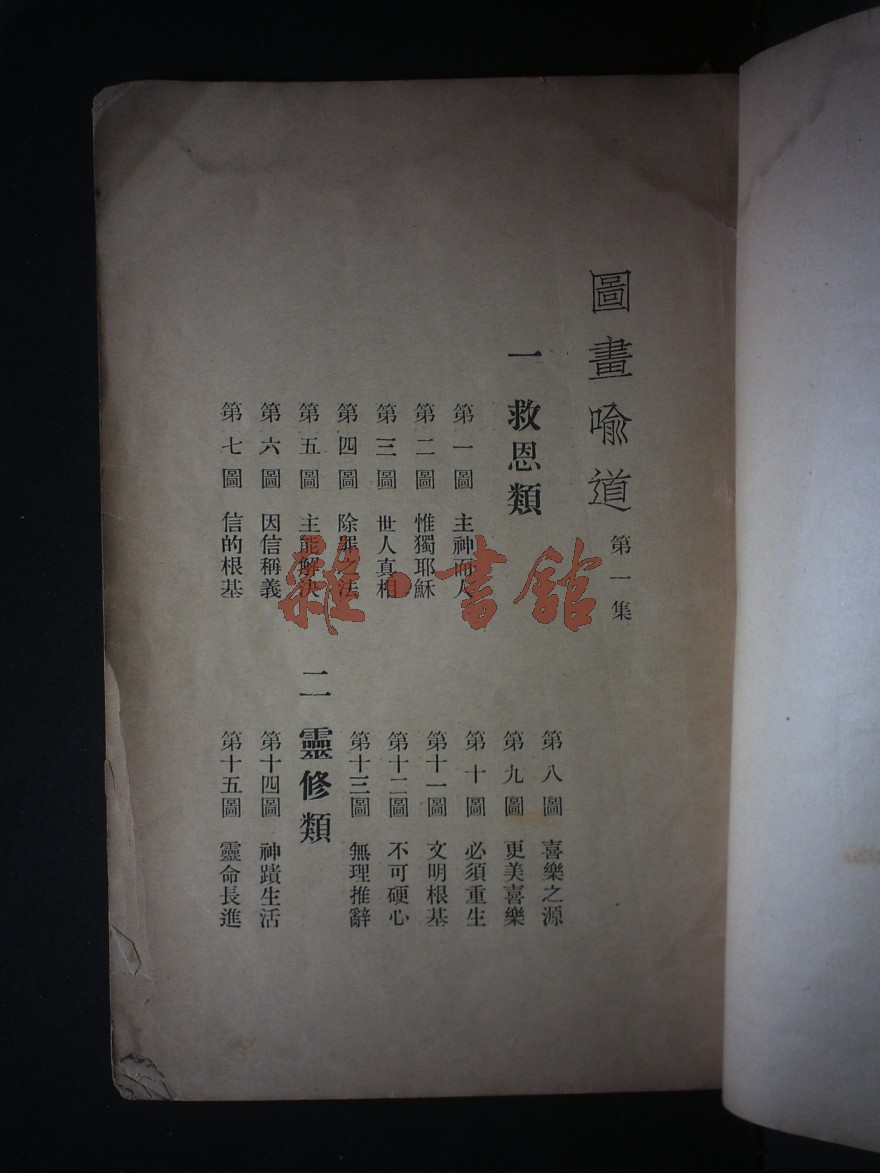 圖畫喻道 第一集
一 救恩類
第一圖 主神而人
第二圖 惟獨耶穌
第三圖 世人真相
第四圖 除罪之法
第五圖 主能解決
第六圖 因信稱義
第七圖 信的根基
第八圖 喜樂之源
第九圖 更美喜樂
第十圖 必須重生
第十一圖 文明根基
第十二圖 不可硬心
第十三圖 無理推辭
二 靈修類
第十四圖 神蹟生活
第十五圖 靈命長進
雜·書館